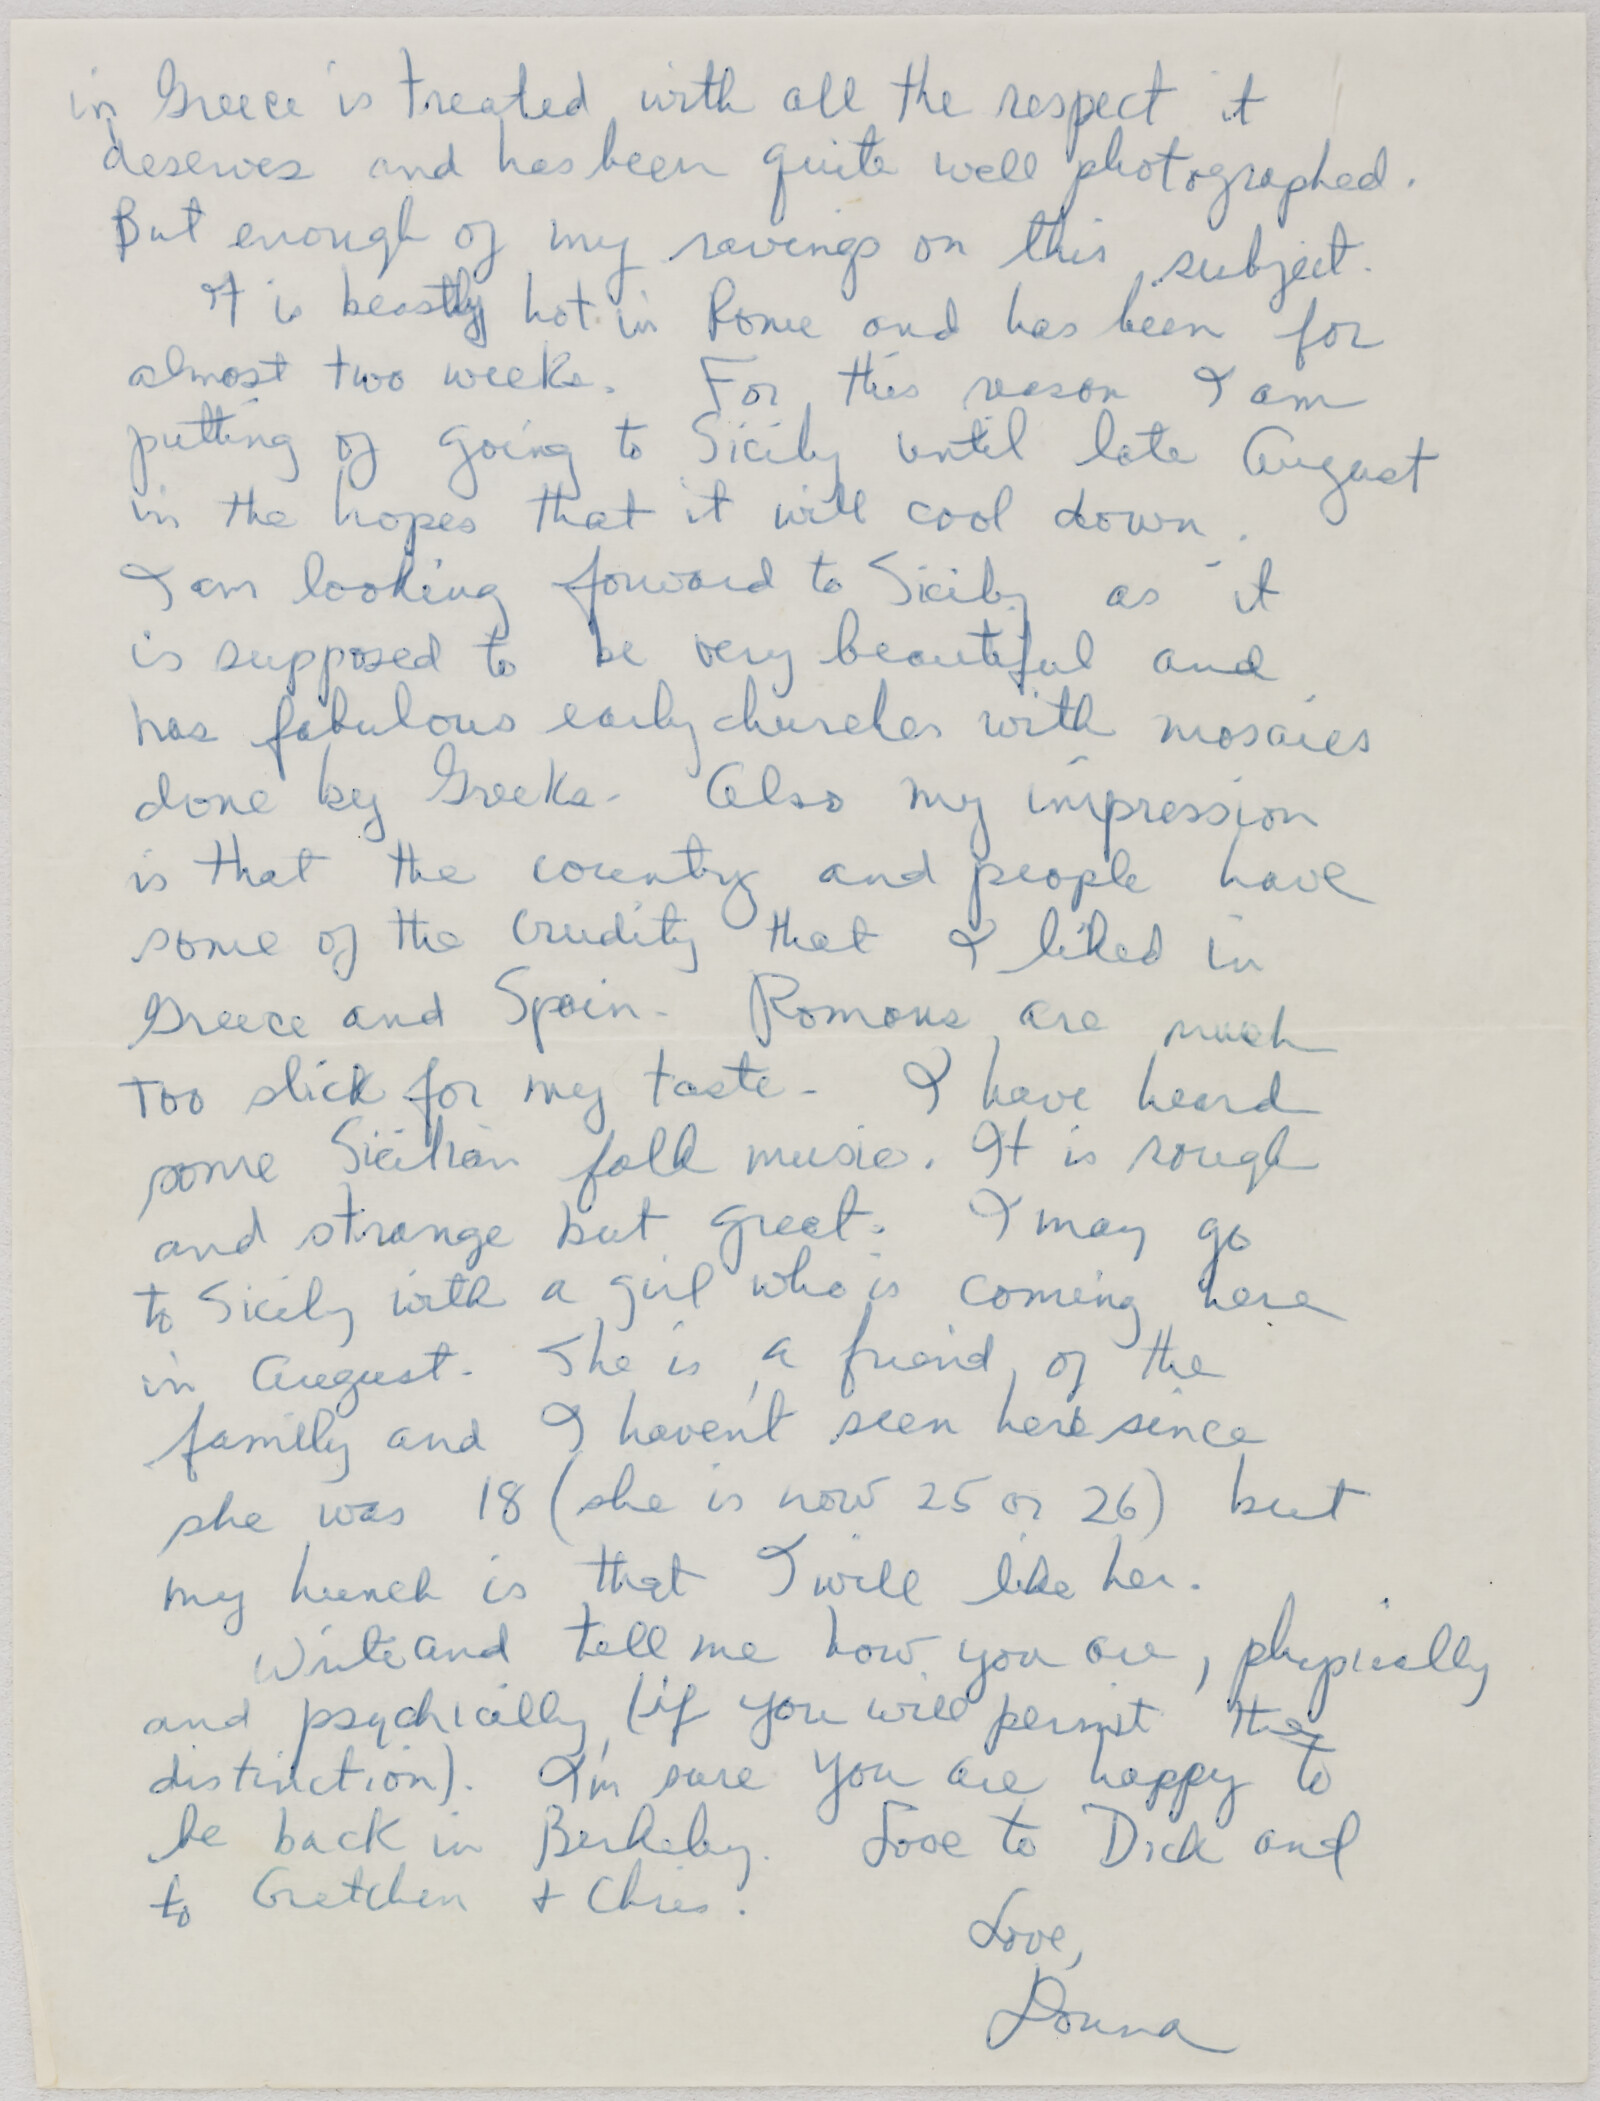 in Greece is treated with all the respect it
deserves and has been quite well photographed.
But enough of my ravings on this subject.
It is beastly hot in Rome and has been for
almost two weeks. For this reason I am
putting of going to Sicily until late August
in the hopes that it will cool down.
I am looking forward to Sicily as it
is supposed to be very beautiful and
has fabulous early churches with mosaics
done by Greeks. Also my impression
is that the country and people have
some of the crudity that I liked in
Greece and Spain. Romans are much
too slick for my taste. I have heard
some Sicilian folk music. It is rough
and strange but great. I may go
to Sicily with a girl who is coming here
in August. She is a friend of the
family and I haven't seen here since
she was 18 (she is now 25 or 26) but
my hunch is that I will like her.
Write and tell me how you are, physically
and psychically (if you will permit the
distinction). I'm sure you are happy to
be back in Berkeley. Love to Dick and
to Gretchen + Chris.
Love,
Donna